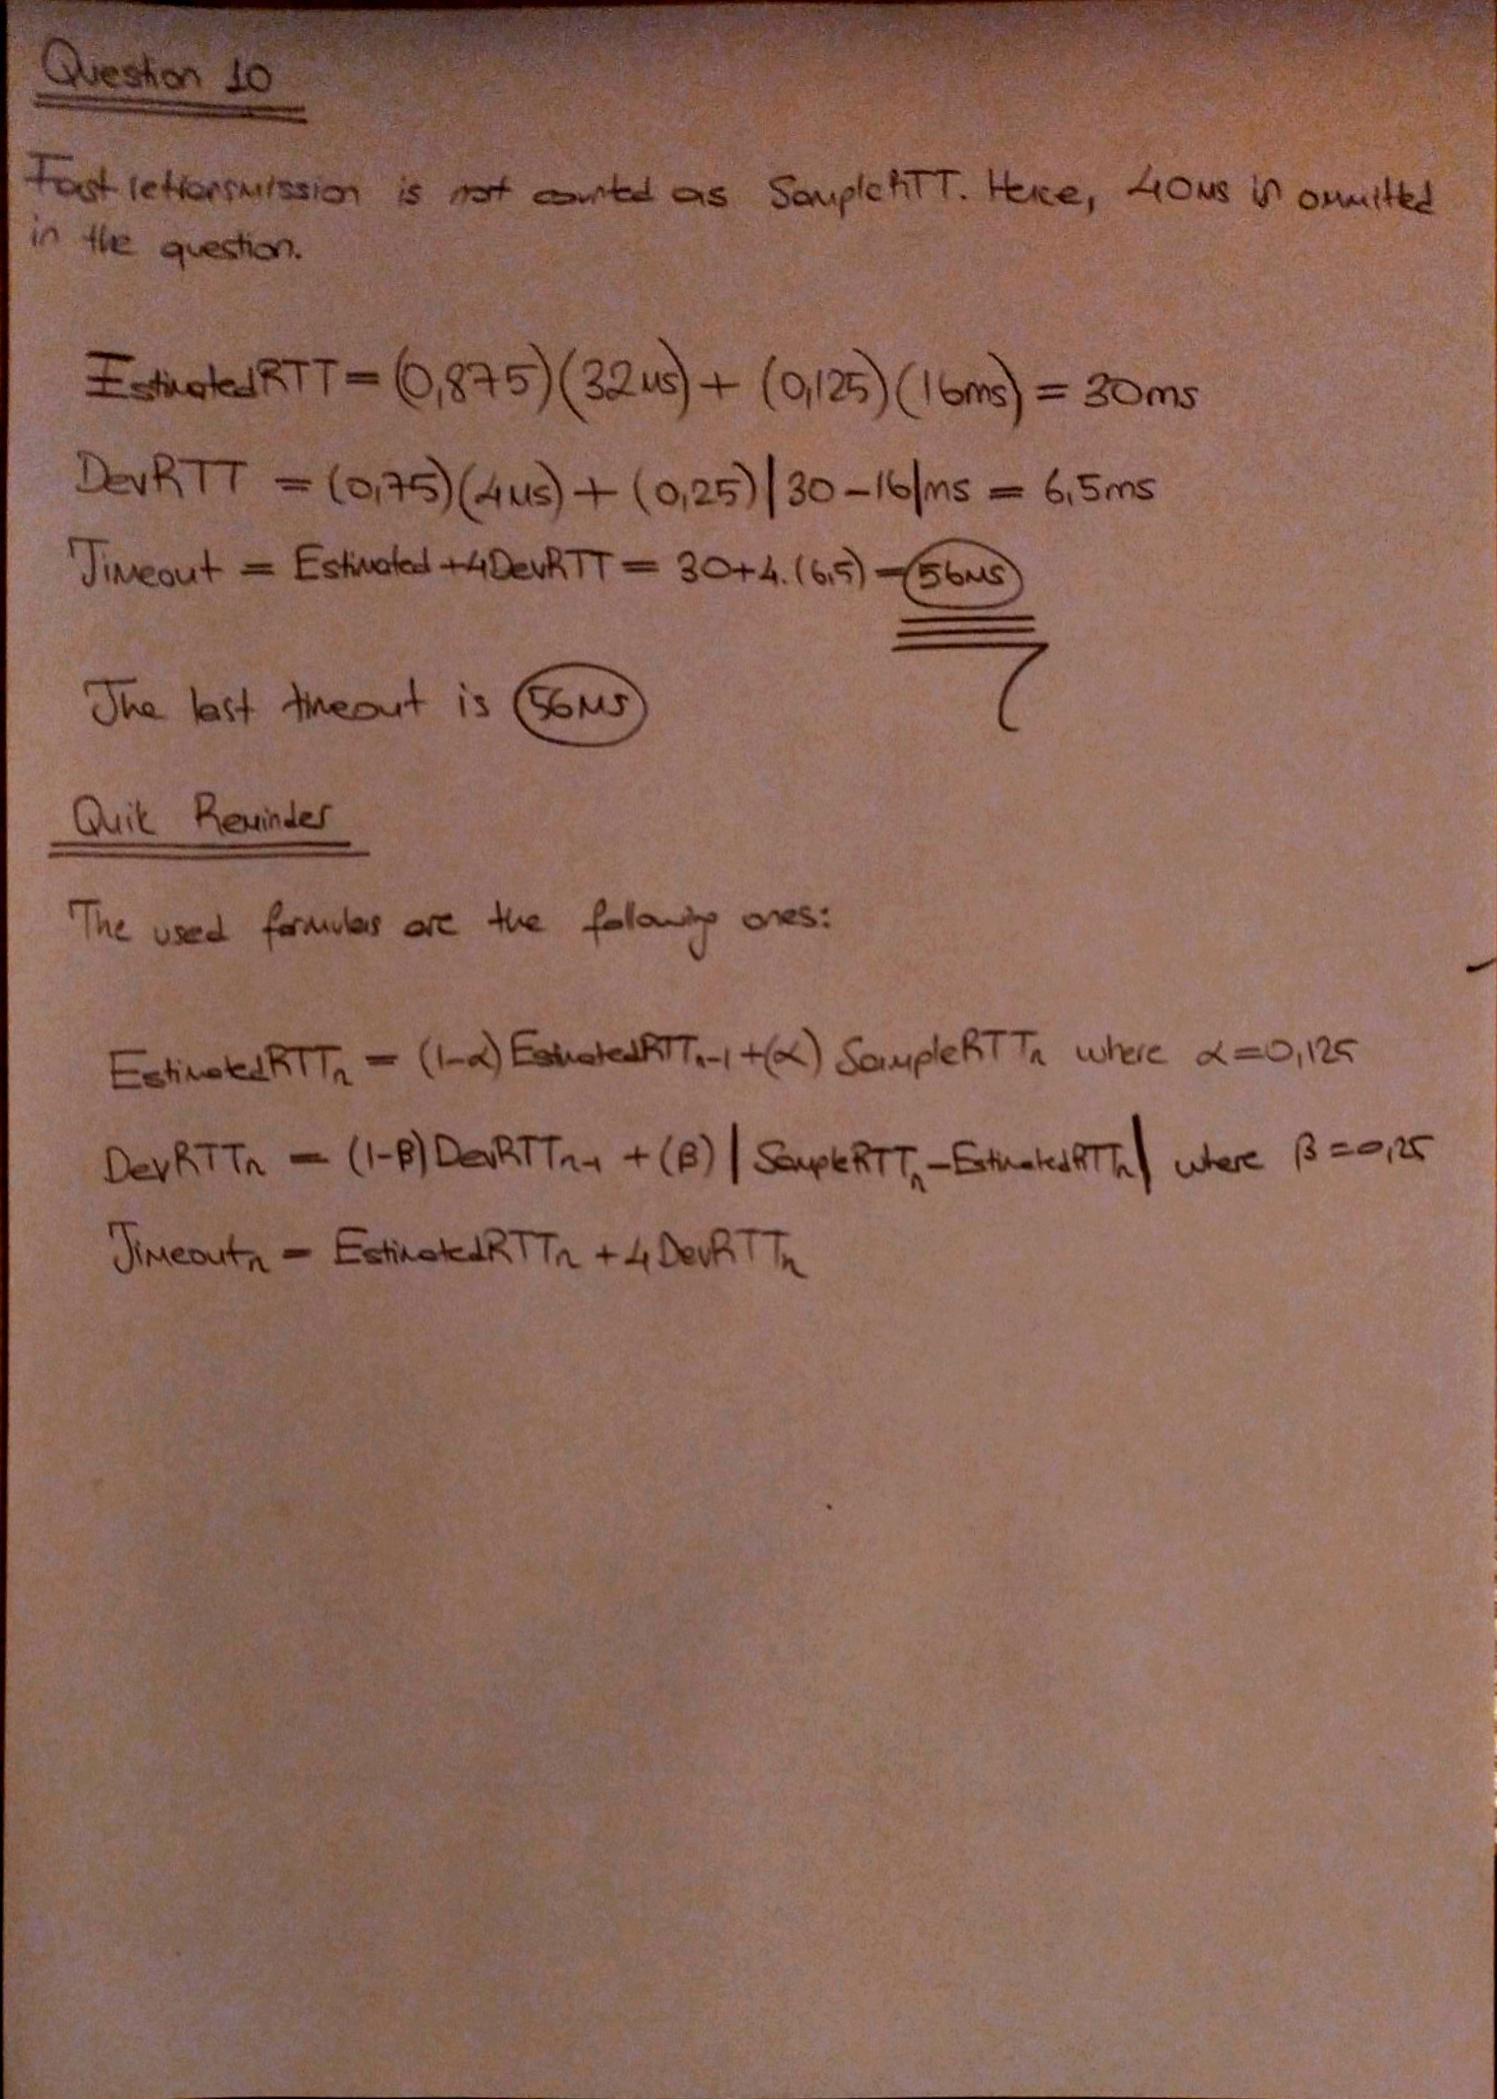 Question 10
Fast retransmission is not counted as SampleRTT. Hence, 40ms is ommitted
in the question.
EstimatedRTT = (0,875)(32ms) + (0,125)(16ms) = 30ms
DevRTT = (0,75)(4ms) + (0,25)|30-16|ms = 6,5ms
Timeout = Estimated + 4DevRTT = 30+4.(6,5) = 56ms
The last timeout is 56ms
Quik Reminder
The used formulas are the following ones:
EstimatedRTTn = (1-α) EstimatedRTTn-1 + (α) SampleRTTn where α=0,125
DevRTTn = (1-β) DevRTTn-1 + (β) | SampleRTTn - EstimatedRTTn | where β=0,25
Timeoutn = EstimatedRTTn + 4 DevRTTn